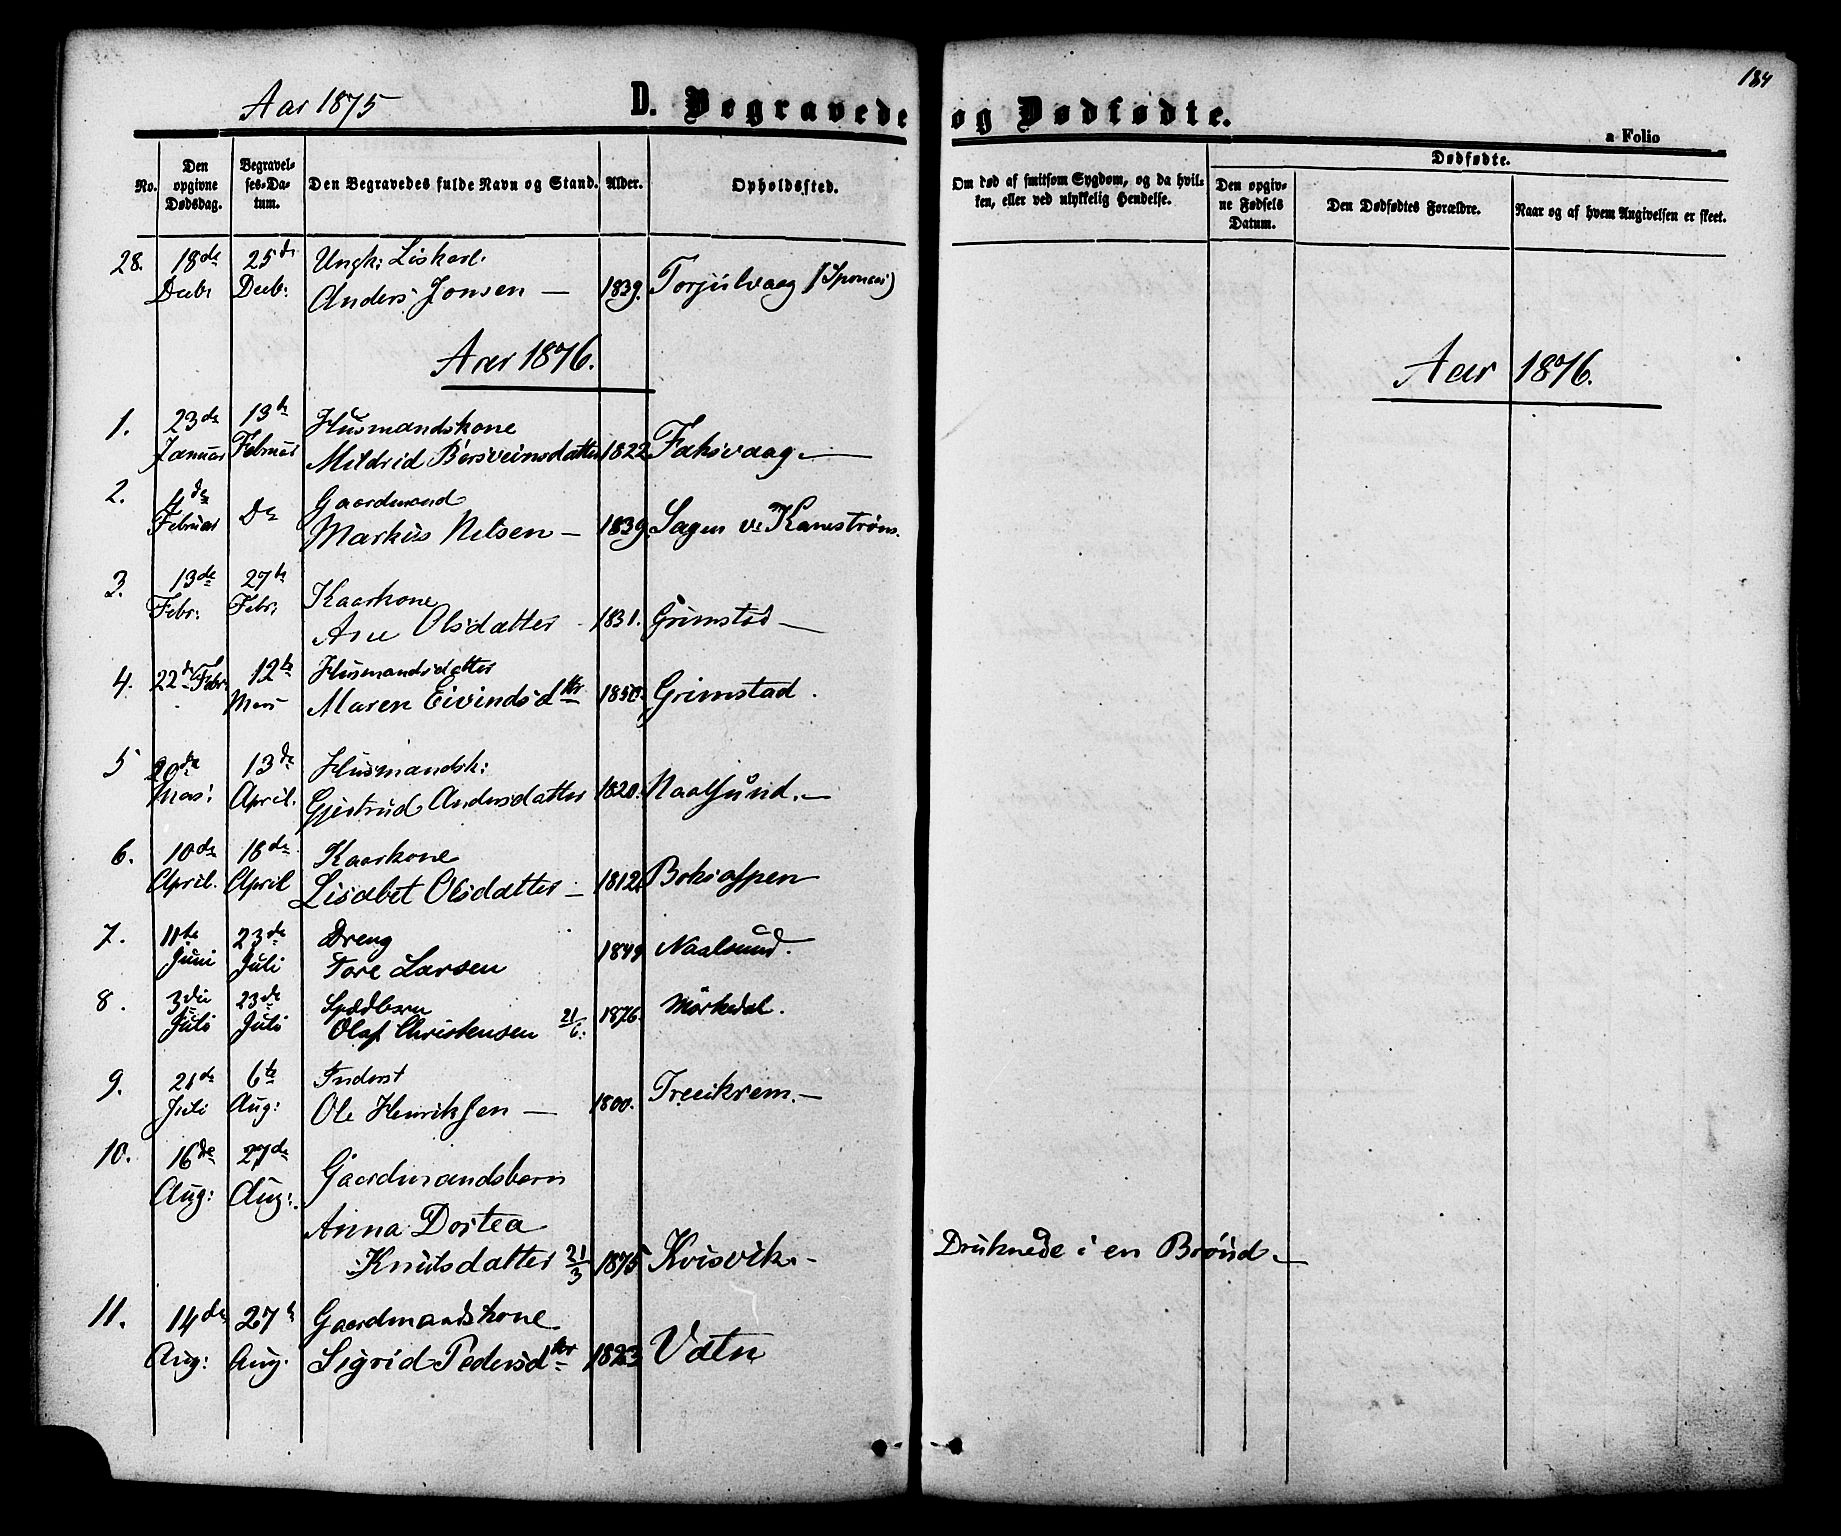 184
Aar 1875 D. Begravede og Dødfødte.
a Folio
No.
Den opgivne Dødsdag.
Begravelses-Datum.
Den Begravedes fulde Navn og Stand.
Alder.
Opholdssted.
Om død af smitsom Sygdom, og da hvilken, eller ved ulykkelig Hendelse.
Dødfødte.
Den opgivne Fødsels Datum.
Den Dødfødtes Forældre.
Naar og af hvem Angivelsen er skeet.
28. 18de 25de Ungk:
Decb: Decb: Anders Jonsen — 1839. Torjulvaag
Aar 1876. Aar 1876.
1. 23de 13de Husmandskone
Januar Februar Mildrid 1822 Faksvaag —
2. 4de Gaardmand
Februar Do Markus Nilsen — 1839 Sagen v: Kanestrøm.
3. 13de 27de Kaarkone
Febr: Febr: Ane Olsdatter 1831. Grimstad —
4. 22de Febr: 12te Husmandsdatter
Mars Maren Eivindsdtr 1850. Grimstad.
5 20de 13de Husmandsk:
Mars: April. Gjertrud Andersdatter 1820. Naalsund. —
6. 10de 18de Kaarkone
April. April Lisabet Olsdatter — 1812. Boksaspen
7. 11te 23de Dreng
Juni Juli Tore Larsen 1849 Naalsund.
8. 3die 23de Spædbarn
Juli Juli Olaf Christensen 21/6: 1876. Mørkedal.
9. 21de 6te Inderst
Juli Aug: Ole Henriksen — 1800. Treeikrem. —
10. 16de 27de Gaardmandsbarn
Aug: Aug:
Anna Dortea
Knutsdatter 21/3 1875 Kvisvik. — Druknede i en Brønd —
11. 14de 27de Gaardmandskone
Aug: Aug. Sigrid Pedersdtr 1823 Vatn